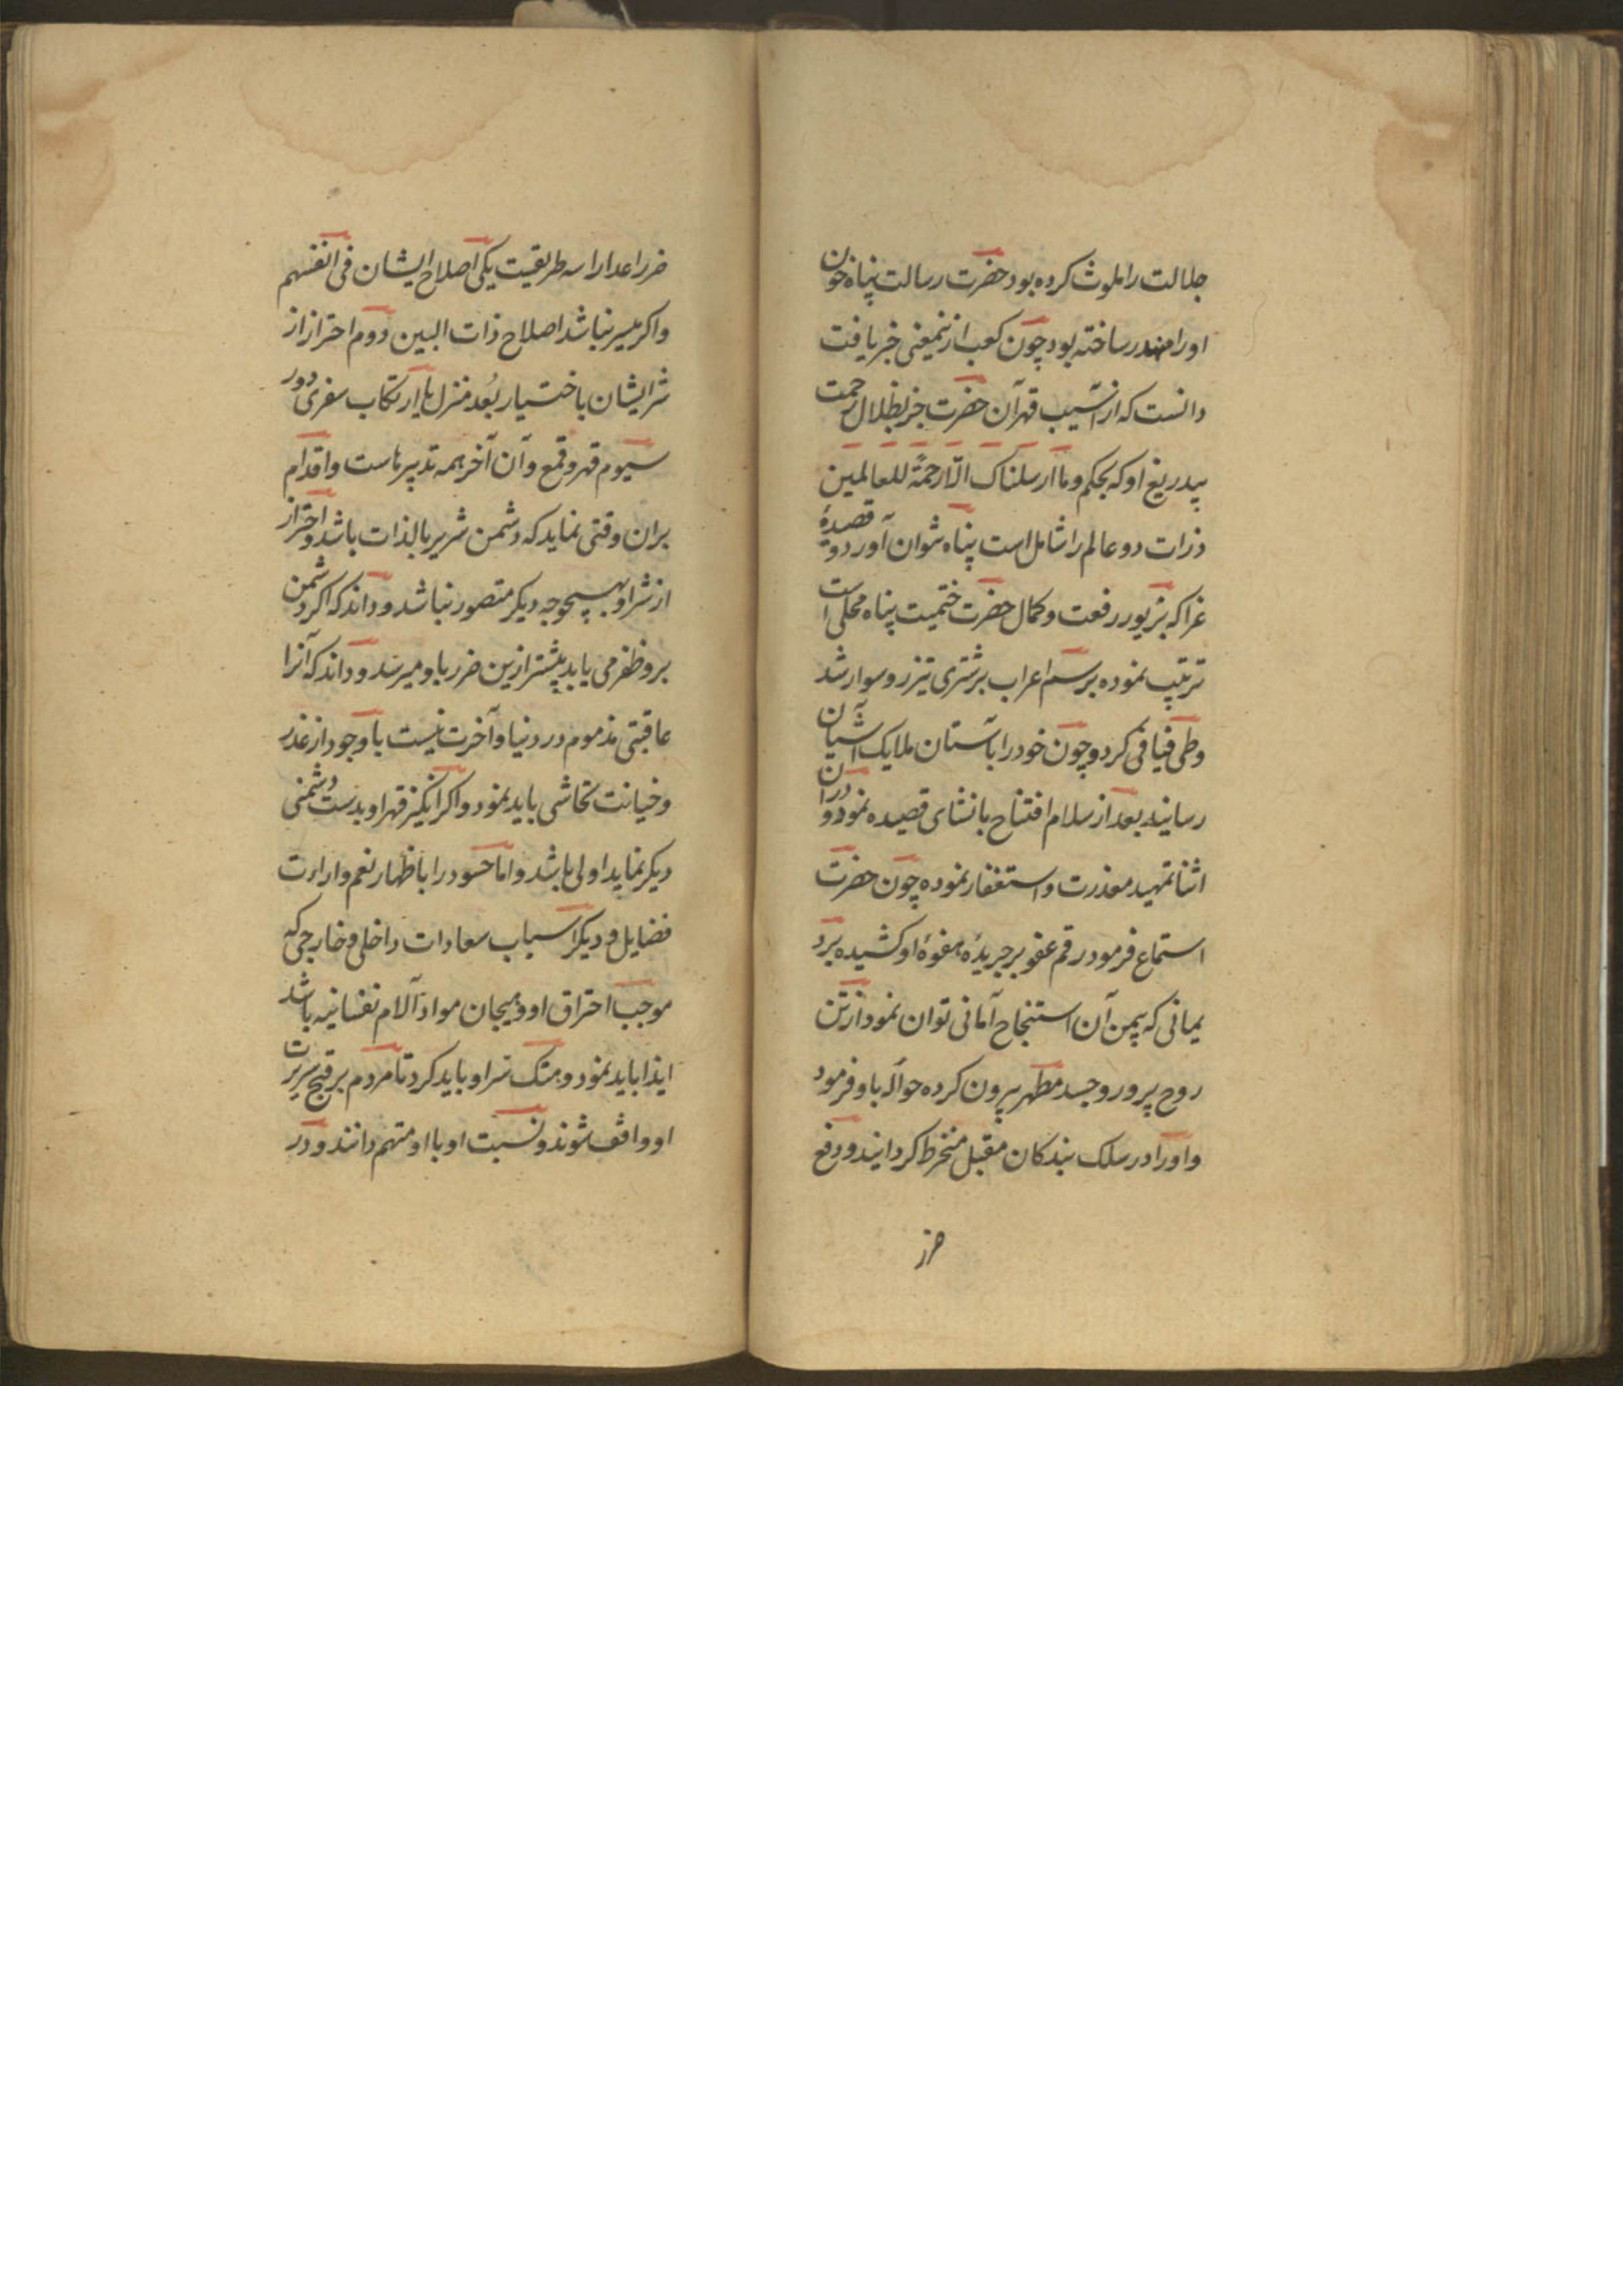 جلالت را ملوث کرده بود حضرت رسالت پناه خون
او را مهدر ساخته بود چون کعب ازینمعنی خبر یافت
دانست که از آسیب قهر آن حضرت جز بظلال رحمت
بیدریغ او که بحکم وما ارسلناک الّا رحمةً للعالمین
ذرات دو عالم را شامل است پناه نتوان آورد و قصیدهٔ
غرا که بزیور رفعت و کمال حضرت ختمیت پناه محلی است
ترتیب نموده برسم اعراب بر شتری تیزرو سوار شد
وطی فیافی کرد و چون خود را بآستان ملایک آشیان
رسانید بعد از سلام افتتاح بانشای قصیده نمود و در آن
اثنا تمهید معذرت و استغفار نموده چون حضرت
استماع فرمود رقم عفو بر جریدهٔ هفوهٔ او کشیده برد
یمانی که بیمن آن استنجاح آمانی توان نمود از تن
روح پرور و جسد مطهر بیرون کرده حواله باو فرمود
و او را در سلک بندکان مقبل منخرط کردانید و دفع
ضرر
ضرر اعدا را سه طریقست یکی اصلاح ایشان فی انفسهم
واکر میسر نباشد اصلاح ذات البین دوم احتراز از
شر ایشان باختیار بُعد منزل یا ارتکاب سفری دور
سیوم قهر و قمع و آن آخر همه تدبیرهاست و اقدام
بران وقتی نماید که دشمن شریر بالذات باشد و احتراز
از شر او بهیچوجه دیکر متصور نباشد و داند که اکر دشمن
برو ظفر می یابد بیشتر ازین ضرر باو میرسد و داند که آنرا
عاقبتی مذموم در دنیا و آخرت نیست با وجود از غدر
و خیانت تحاشی باید نمود و اکر انکیز قهر او بدست دشمنی
دیکر نماید اولی باشد و اما حسود را باظهار نعم و اراءت
فضایل و دیکر اسباب سعادات داخلی و خارجی که
موجب احتراق او و هیجان مواد آلام نفسانیه باشد
ایذا باید نمود و هتک ستر او باید کرد تا مردم بر قبح سریرت
او واقف شوند و نسبت او با او متهم دانند و در